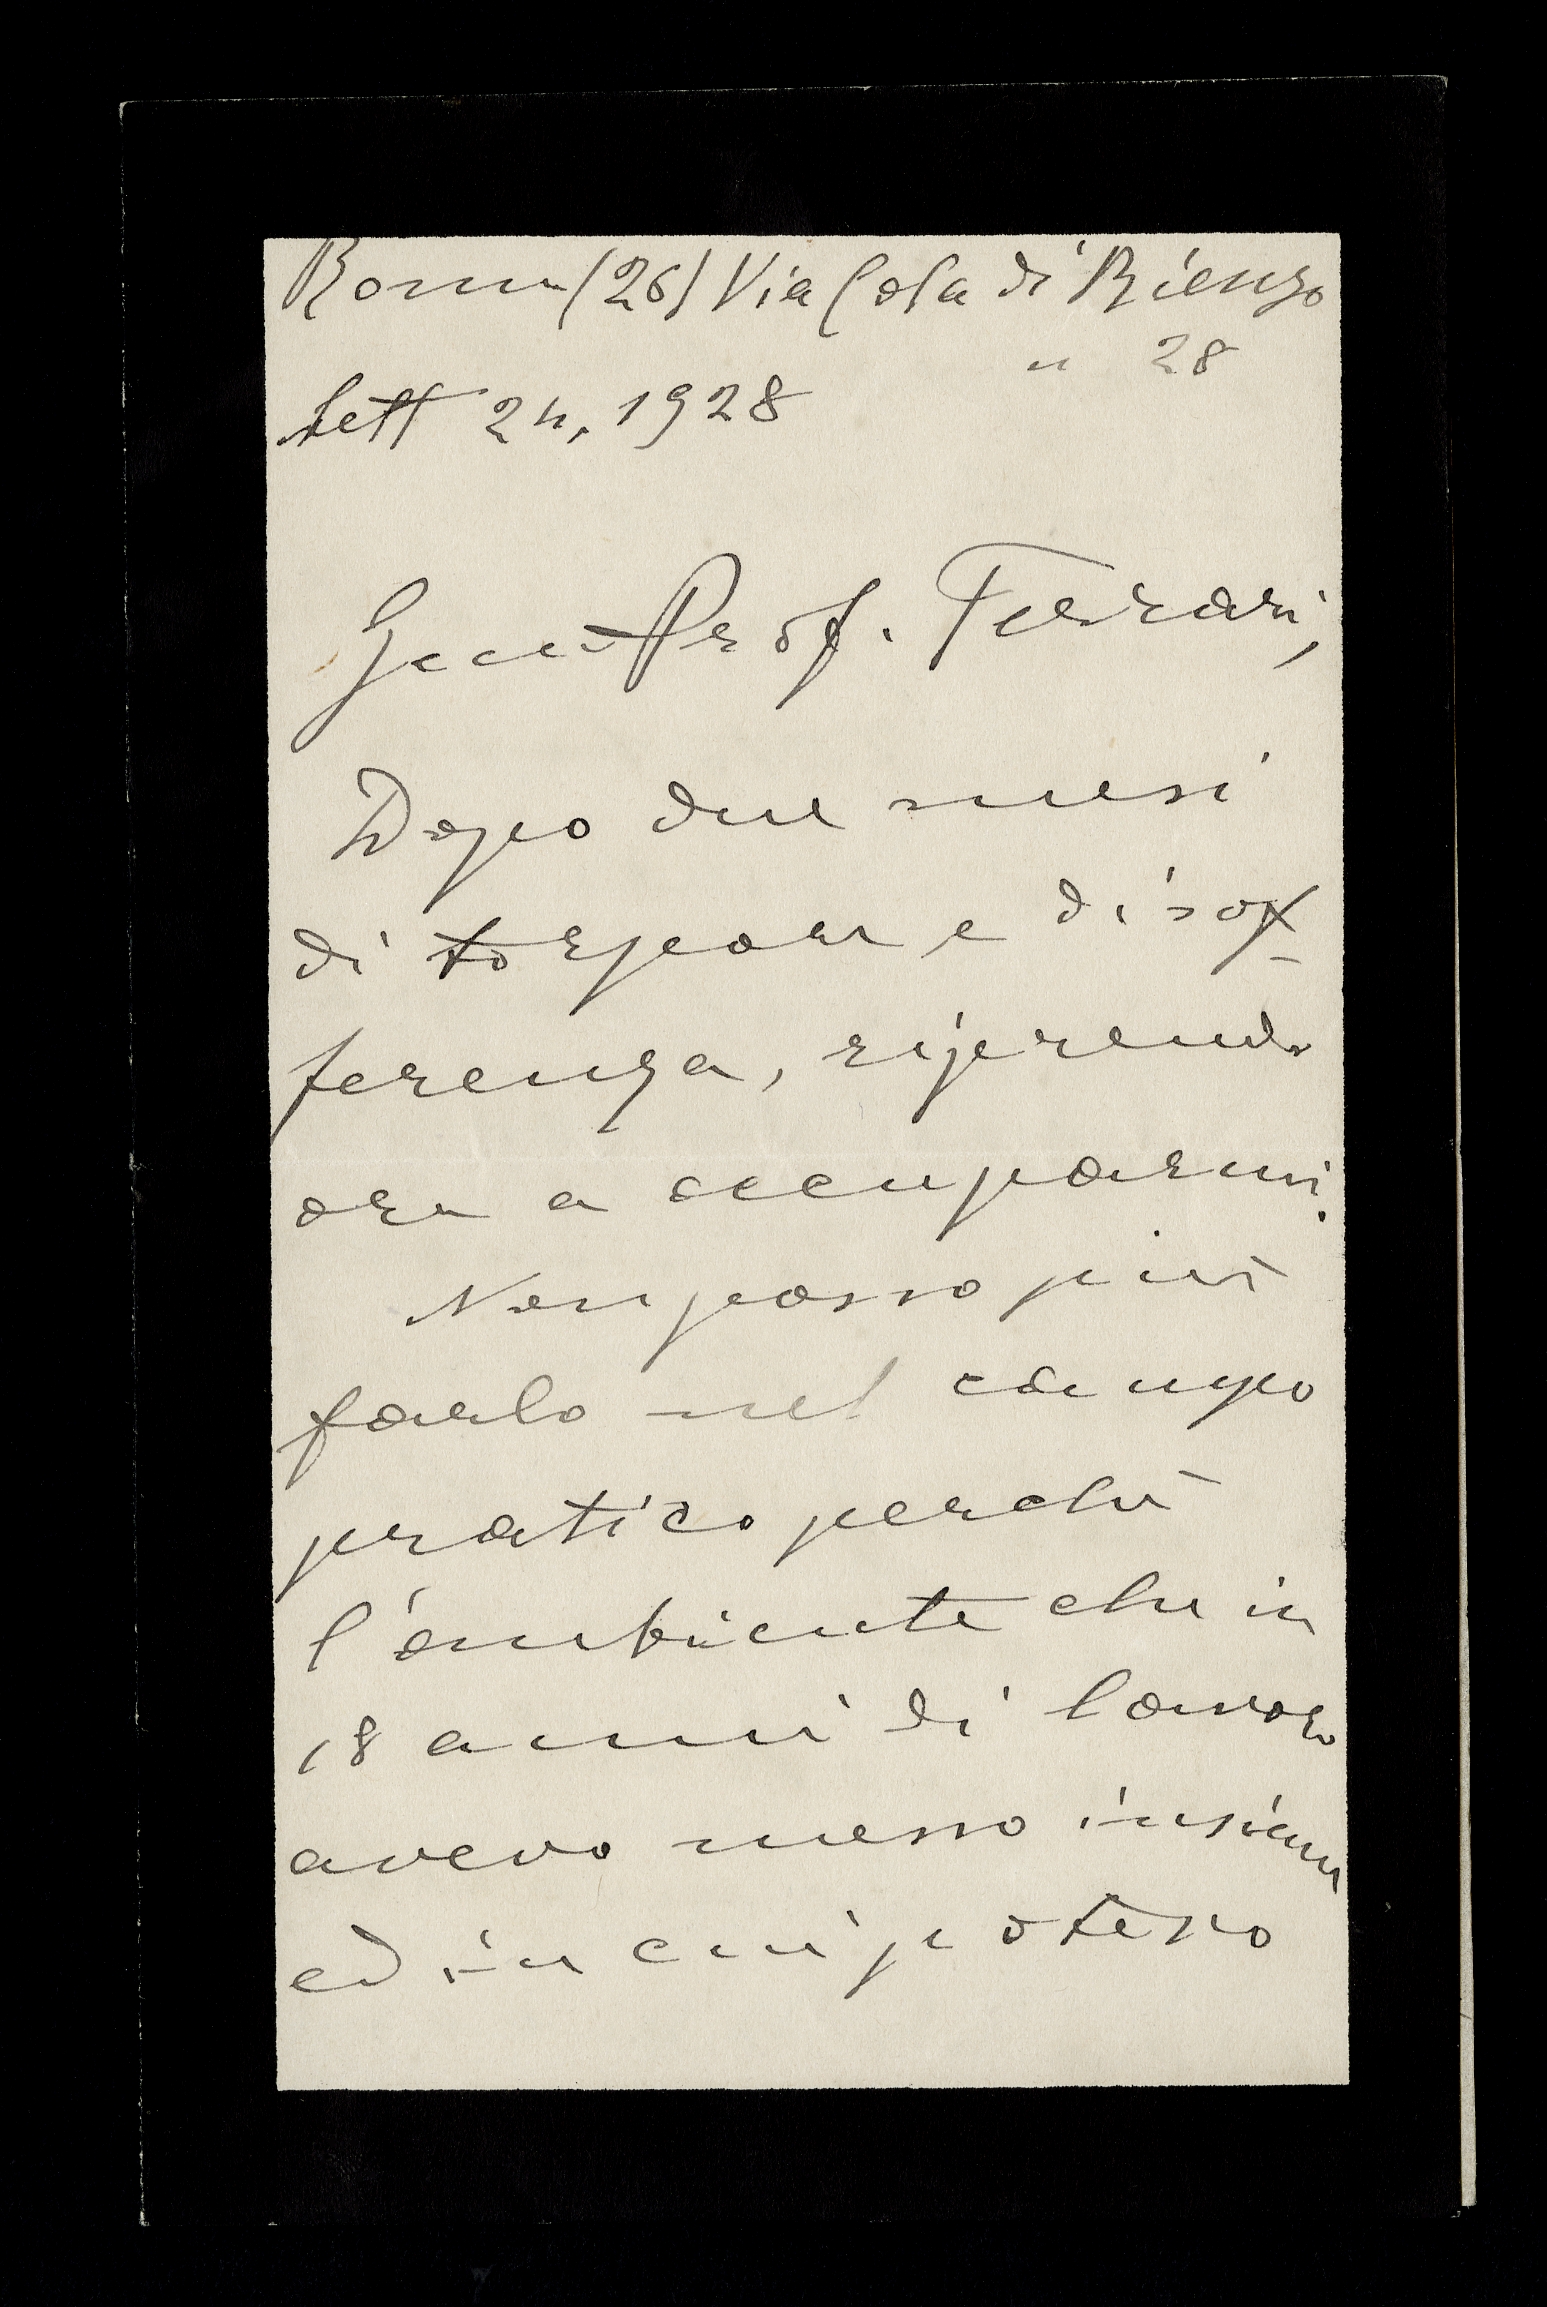 Roma (26) Via Cola di Rienzo
" 28
Sett 24, 1928
Prof. Ferrari,
Dopo due mesi
di torpore e di sof-
ferenza, riprendo
ora a occuparmi.
Non posso più
farlo nel campo
pratico perchè
l'ambiente che in
18 anni di lavoro
avevo messo insieme
ed in cui potevo